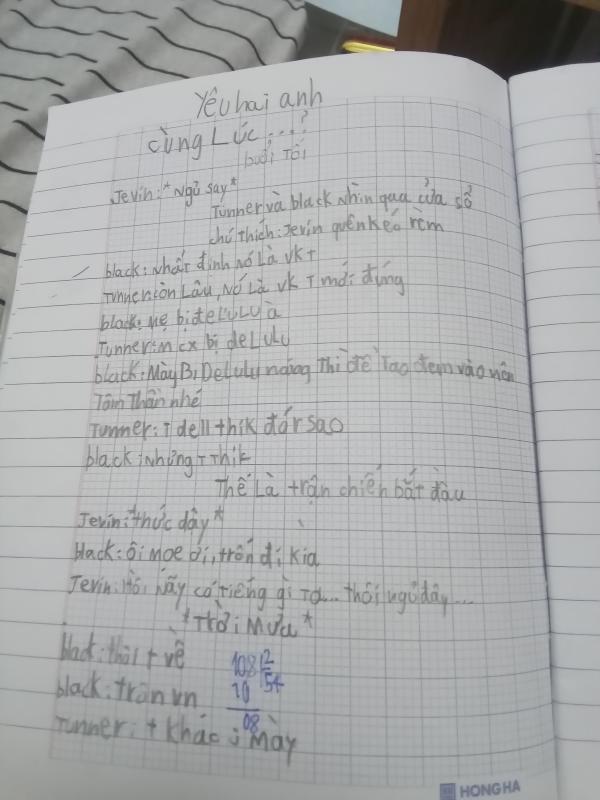 Yêu hai anh
cùng Lúc....?
buổi Tối
Jevin:*Ngủ say*
Tunner và black nhìn qua cửa sổ
chú thích: Jevin quên kéo rèm
black: nhất định nó là vk t
Tunner: còn Lâu, nó là vk T mới đúng
black: mẹ bị deLuLu à
Tunner: m cx bị deLuLu
black: Mày Bị DeLulu nặng Thì để Tao đem vào viện
Tâm Thần nhé
Tunner: T dell thik đấy sao
black: nhưng T Thik
Thế Là trận chiến bắt đầu
Jevin:*thức dậy*
black: ôi moe ơi, trốn đi kìa
Jevin: Hồi nãy có tiếng gì Ta... thôi ngủ đây...
*Trời Mưa*
black: thôi t về
black: trốn vn
Tunner: t khác j mày
108 2
10 54
08
HONG HA